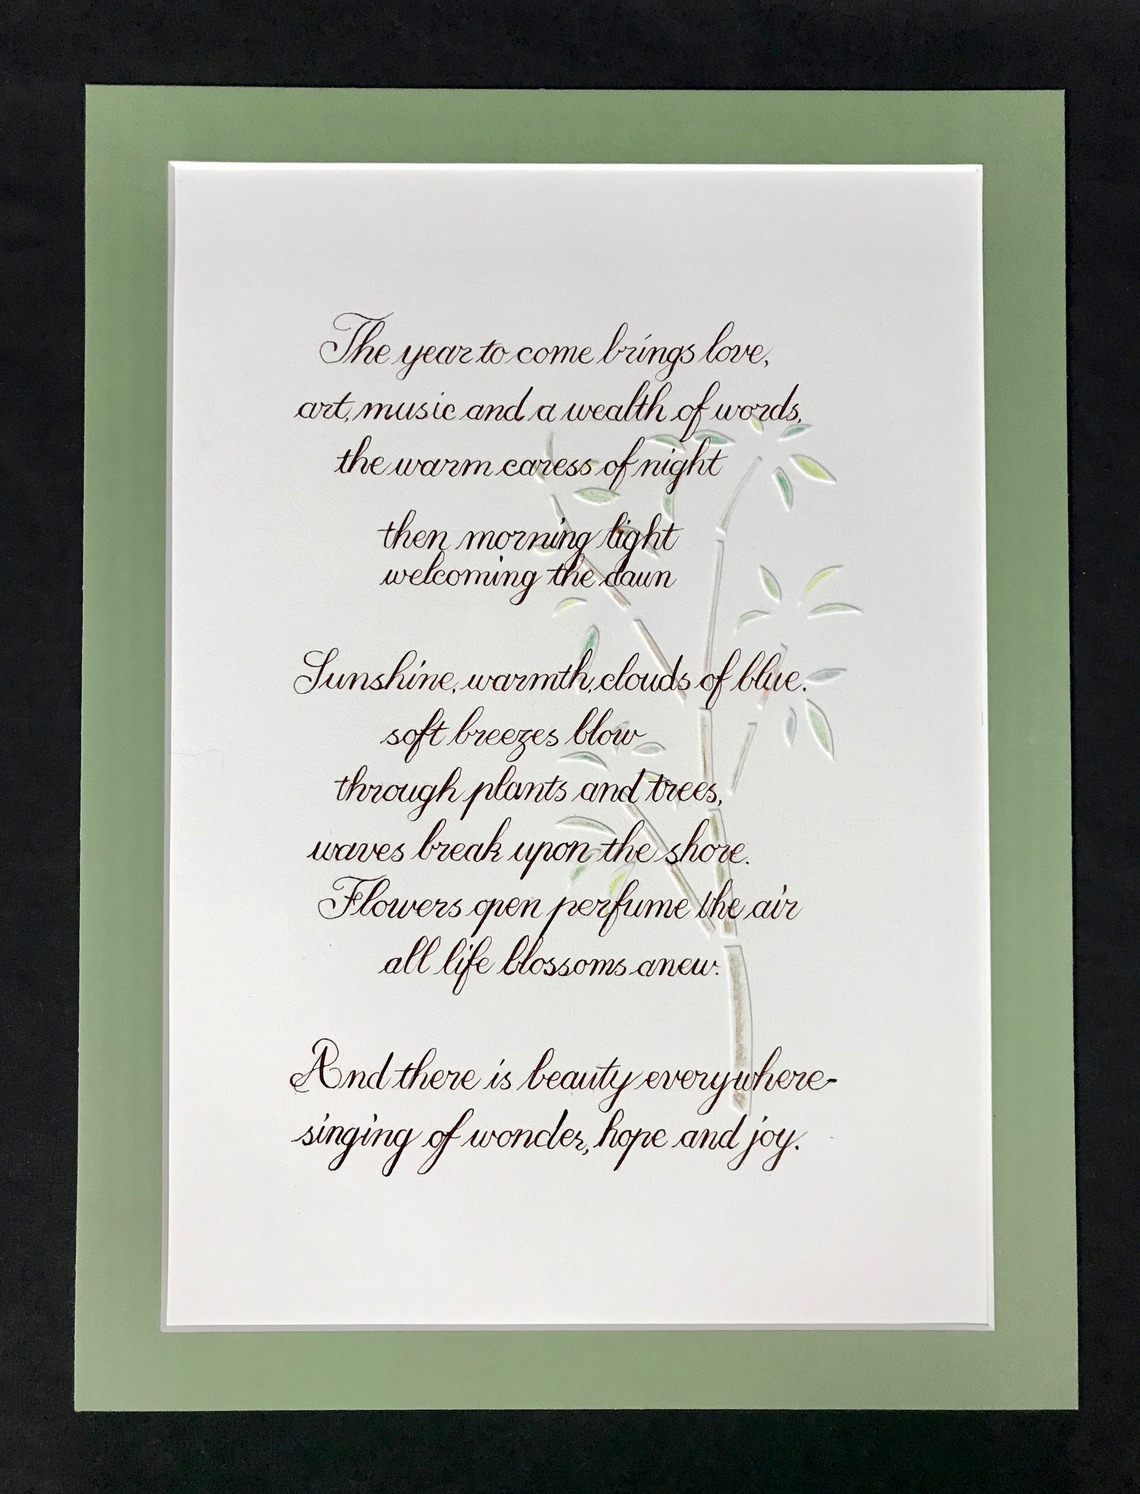 The year to come brings love,
art, music and a wealth of words,
the warm caress of night
then morning light
welcoming the dawn
Sunshine, warmth, clouds of blue.
soft breezes blow
through plants and trees,
waves break upon the shore.
Flowers open perfume the air
all life blossoms anew.
And there is beauty everywhere-
singing of wonder, hope and joy.